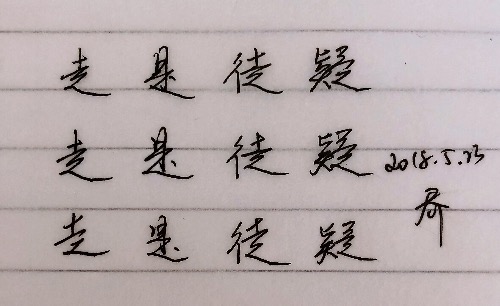 走是徒疑
走是徒疑 2018.5.23
走是徒疑